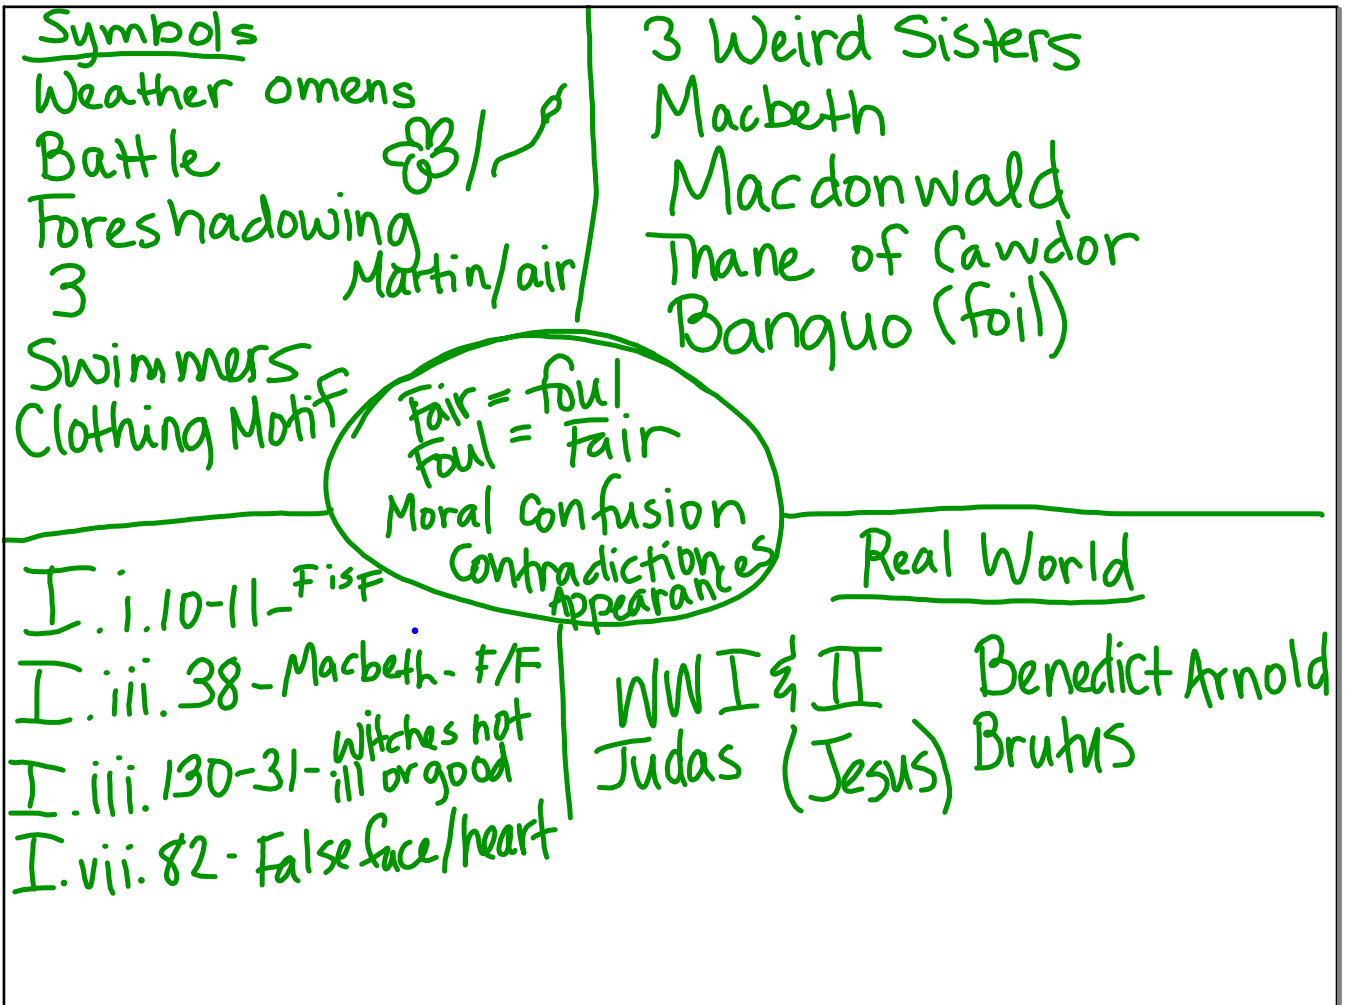 Symbols
Weather omens
Battle
Foreshadowing
3
Martin/air
Swimmers
Clothing Motif
3 Weird Sisters
Macbeth
Macdonwald
Thane of Cawdor
Banquo (foil)
Fair = foul
Foul = Fair
Moral Confusion
Contradiction
Appearances
I.i.10-11- F is F
I.iii.38- Macbeth - F/F
I.iii.130-31- Witches not
ill or good
I.vii.82- False face/heart
Real World
WW I & II
Judas (Jesus)
Benedict Arnold
Brutus